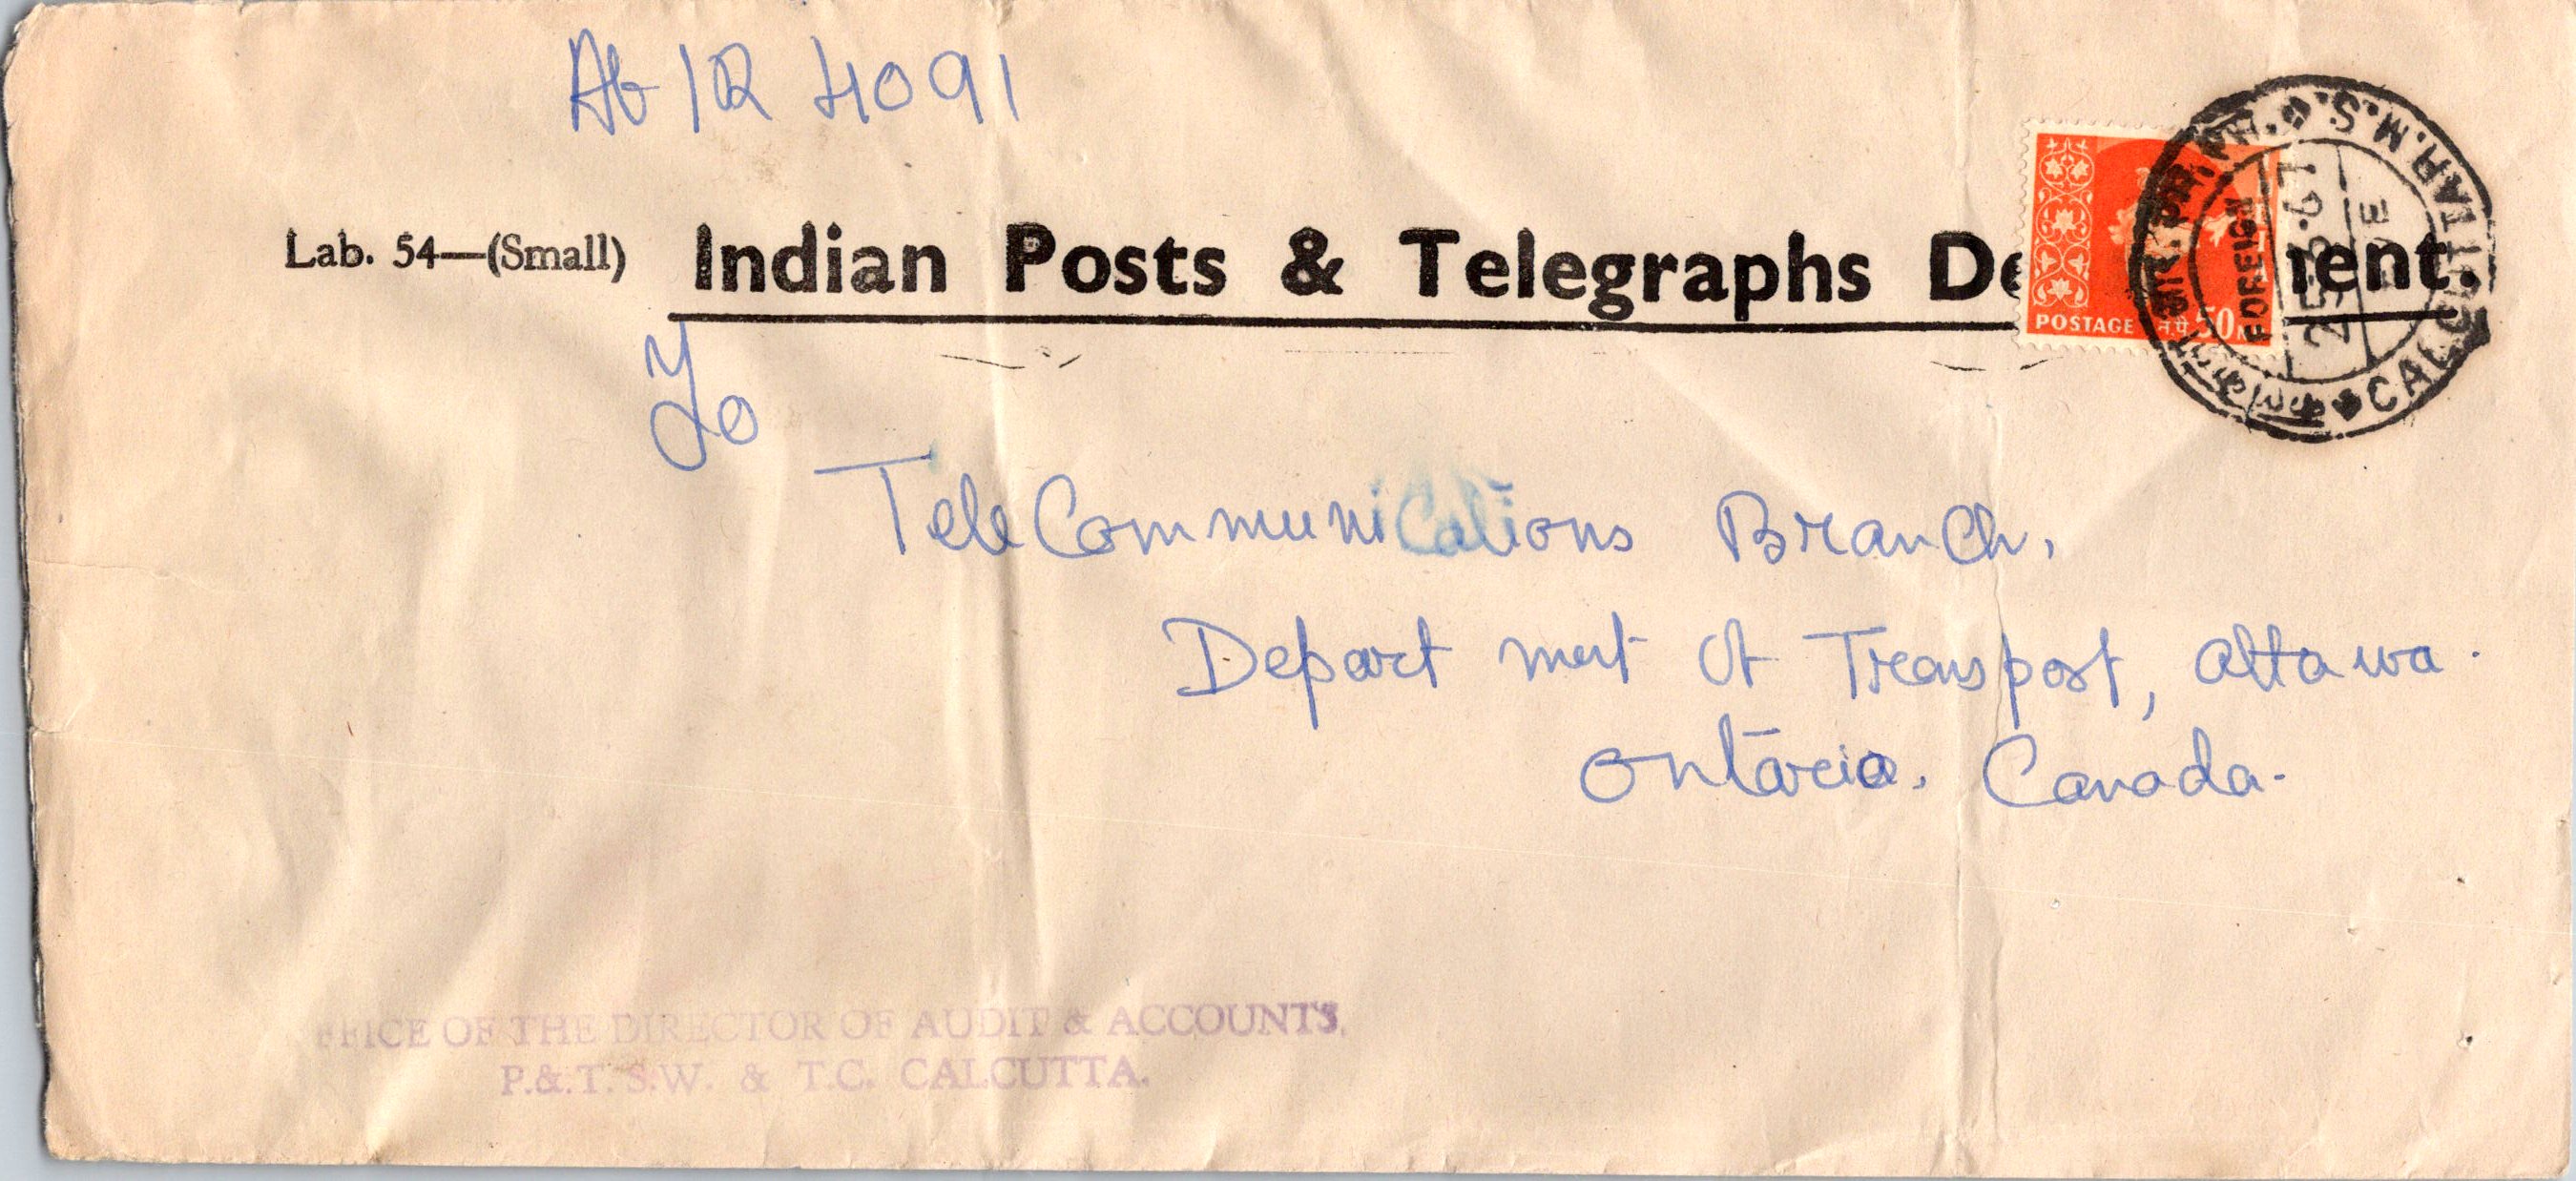 Ab/R 4091
Lab. 54—(Small) Indian Posts & Telegraphs De ent.
POSTAGE 50
FOREIGN
CALCUTTA R.M.S.
25·3·67
E
To
TeleCommunications Branch,
Depart ment of Transport, Ottawa.
Ontario. Canada.
FFICE OF THE DIRECTOR OF AUDIT & ACCOUNTS,
P.&.T. S.W. & T.C. CALCUTTA.